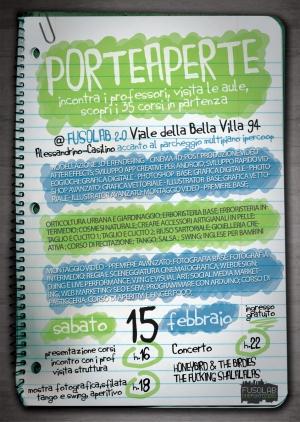 PORTEAPERTE
incontra i professori, visita le aule,
scopri i 35 corsi in partenza
@ FUSOLAB 2.0 Viale della Bella Villa 94
Alessandrino-Casilino accanto al parcheggio multipiano ipercoop
MODELLAZIONE 3D E RENDERING
AFTER EFFECTS; SVILUPPO APP CREATIVE PER ANDROID; SVILUPPO RAPIDO VID
SHOP AVANZATO; GRAFICA VETTORIALE - ILLUSTRATOR BASE; GRAFICA VETTO
RIALE - ILLUSTRATOR AVANZATO; MONTAGGIO VIDEO - PREMIERE BASE
ORTICOLTURA URBANA E GIARDINAGGIO; ERBORISTERIA BASE; ERBORISTERIA IN
TERMEDIO; COSMESI NATURALE; CREARE ACCESSORI ARTIGIANALI IN PELLE;
TAGLIO E CUCITO 1; TAGLIO E CUCITO 2; RIUSO SARTORIALE; GIOIELLERIA CREA
ATIVA; CORSO DI RECITAZIONE; TANGO; SALSA; SWING; INGLESE PER BAMBINI
MONTAGGIO VIDEO - PREMIERE AVANZATO; FOTOGRAFIA BASE; FOTOGRAFIA
INTERMEDIO; REGIA E SCENEGGIATURA CINEMATOGRAFICA; WEB DESIGN
ING; WEB MARKETING; SEO E SEM; PROGRAMMARE CON ARDUINO; CORSO DI
PASTICCERIA; CORSO DI APERITIVI E FINGER FOOD
sabato 15 febbraio
ingresso
gratuito
presentazione corsi
incontro con i prof
visita struttura
h.16
Concerto h.22
mostra fotografica,sfilata
tango e swing, aperitivo
h.18
HONEYBIRD & THE BIRDIES
THE FUCKING SHALALALAS
FUSOLAB